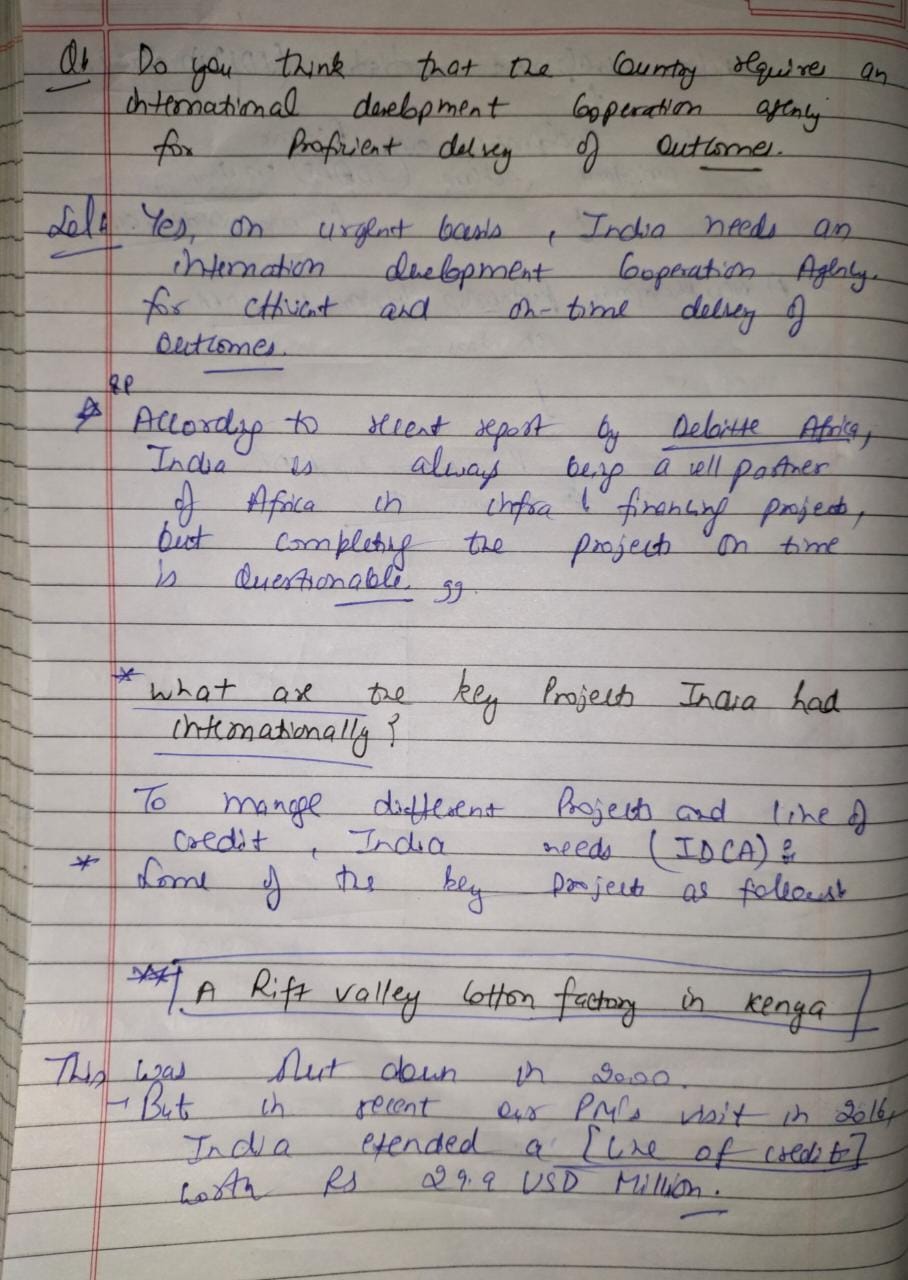 Q1 Do you think that the Country requires an
international development Cooperation agency
for Proficient delvey of Outcomes.
Sol: Yes, on urgent basis, India needs an
internation development Cooperation Agency.
for efficient and on-time delvey of
Outcomes.
According to recent report by Deloitte Africa,
India is always being a well partner
of Africa in infra & financing projects,
but completing the projects on time
is Questionable "
* What are the key Projects India had
internationally?
To manage different Projects and line of
credit, India needs (IDCA) &
* Some of the key Projects as follows:
** A Rift valley Cotton factory in kenya
This was shut down in 2000.
→ But in recent our PM's visit in 2016,
India extended a [Line of credit]
worth Rs 29.9 USD Million.